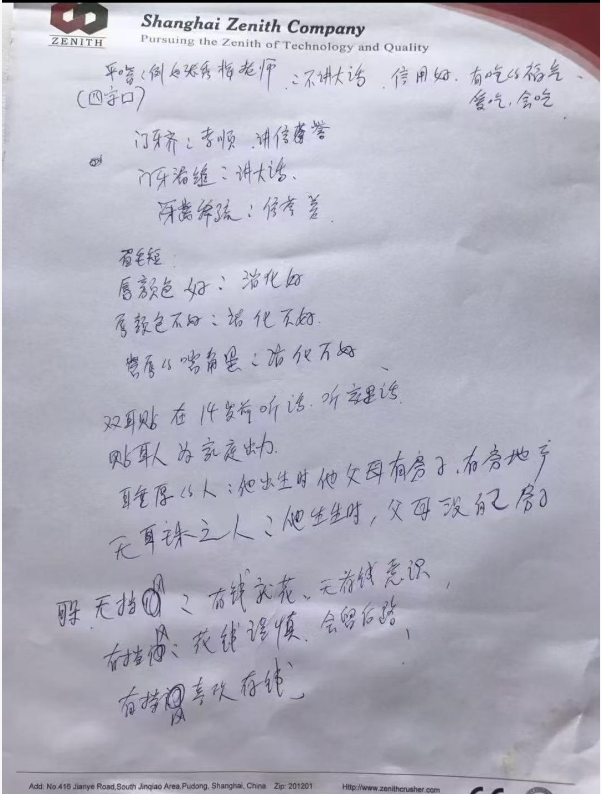 ZENITH
Shanghai Zenith Company
Pursuing the Zenith of Technology and Quality
老师：不讲大话 信用好. 有吃的福气、
(四字口) 爱吃. 会吃
门牙齐：孝顺 讲信誉
门牙有缝：讲大话.
牙齿稀疏：信誉差
眉毛短：
唇颜色好：消化好
唇颜色不好：消化不好.
嘴角黑：消化不好、
双耳贴 在14岁前听话. 听家里话
贴耳人为家庭出力.
耳垂厚的人：他出生时他父母有房子.有房地产
无耳珠之人：他出生时, 父母没自己房子
无挡：有钱就花、无存钱意识
有挡：花钱谨慎. 会留后路,
有挡 喜欢存钱
Add: No.416 Jianye Road,South Jinqiao Area,Pudong, Shanghai, China Zip: 201201 Http://www.zenithcrusher.com